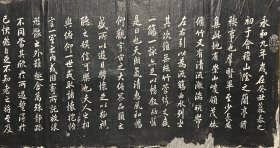 永和九年歲在癸丑暮春之
初會于會稽山陰之蘭亭脩
稧事也羣賢畢至少長咸集
此地有崇山峻領茂林
脩竹又有清流激湍暎帶
左右引以為流觴曲水列坐
其次雖無絲竹管弦之盛
一觴一詠亦足以暢敘幽情
是日也天朗氣清惠風和暢
仰觀宇宙之大俯察品類之
盛所以遊目騁懷足以極視
聽之娛信可樂也夫人之相
與俯仰一世或取諸懷抱悟
言一室之內或因寄所託放浪
形骸之外雖趣舍萬殊靜躁
不同當其欣於所遇暫得於
己快然自足不知老之將至及